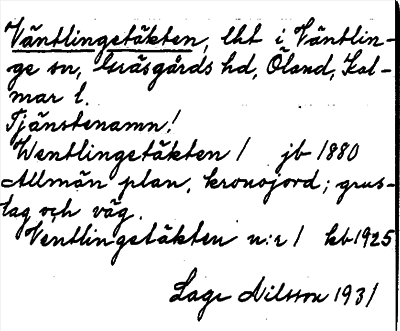 Väntlingetäkten, lht i Väntlin-
ge sn, Gräsgårds hd, Öland, Kal-
mar l.
Tjänstenamn!
Wentlingetäkten 1 jb 1880
Allmän plan, kronojord; grus-
tag och väg.
Ventlingetäkten n:r 1 kb 1925
Lage Nilsson 1931